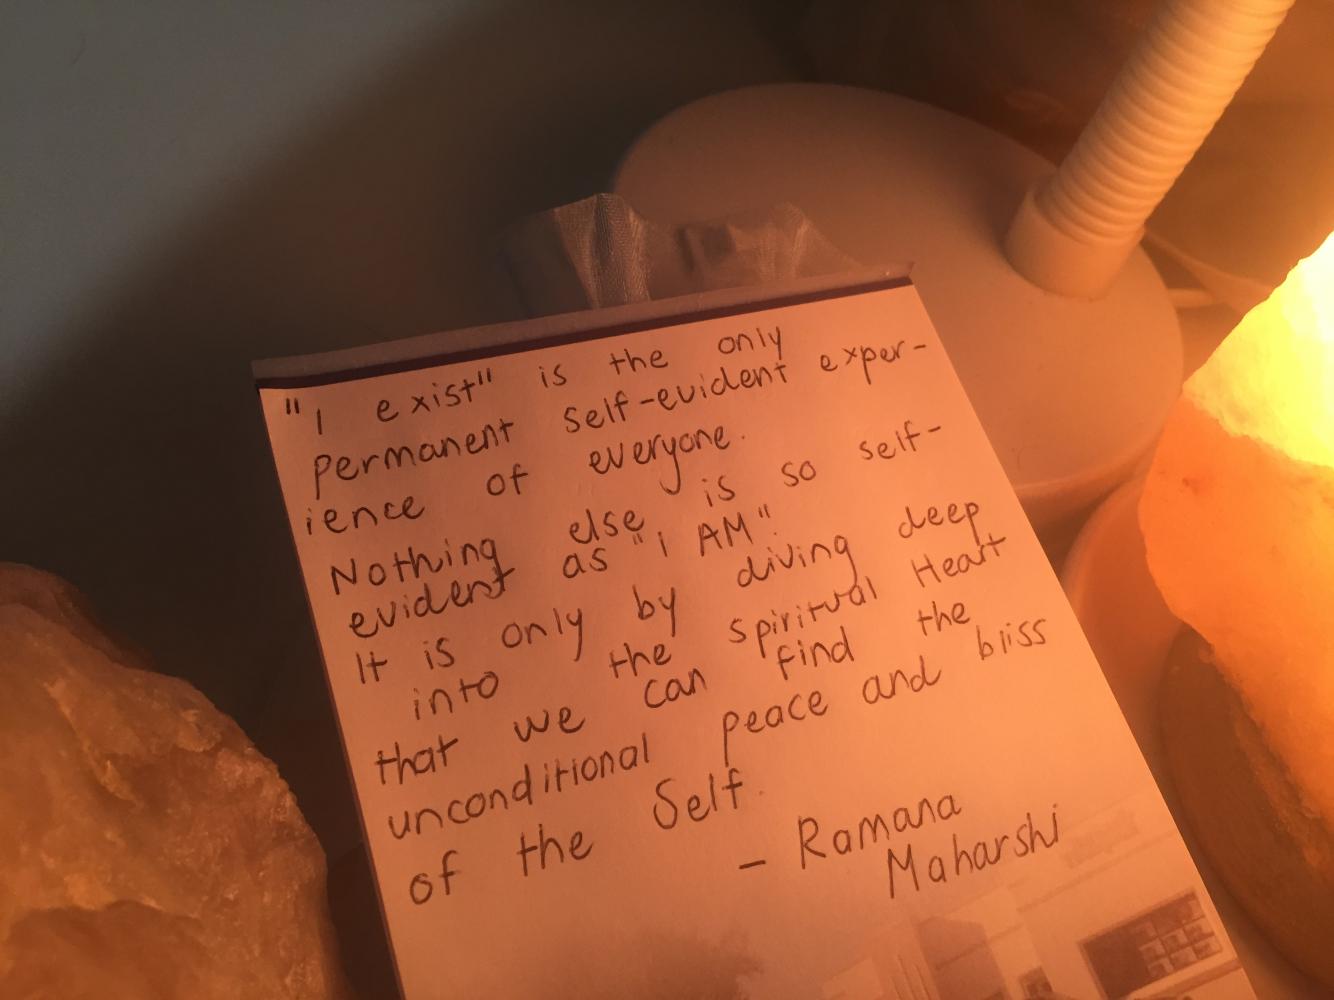 "I exist" is the only
permanent self-evident exper-
ience of everyone.
Nothing else is so self-
evident as "I AM".
It is only by diving deep
into the spiritual Heart
that we can find the
unconditional peace and bliss
of the Self.
- Ramana
Maharshi